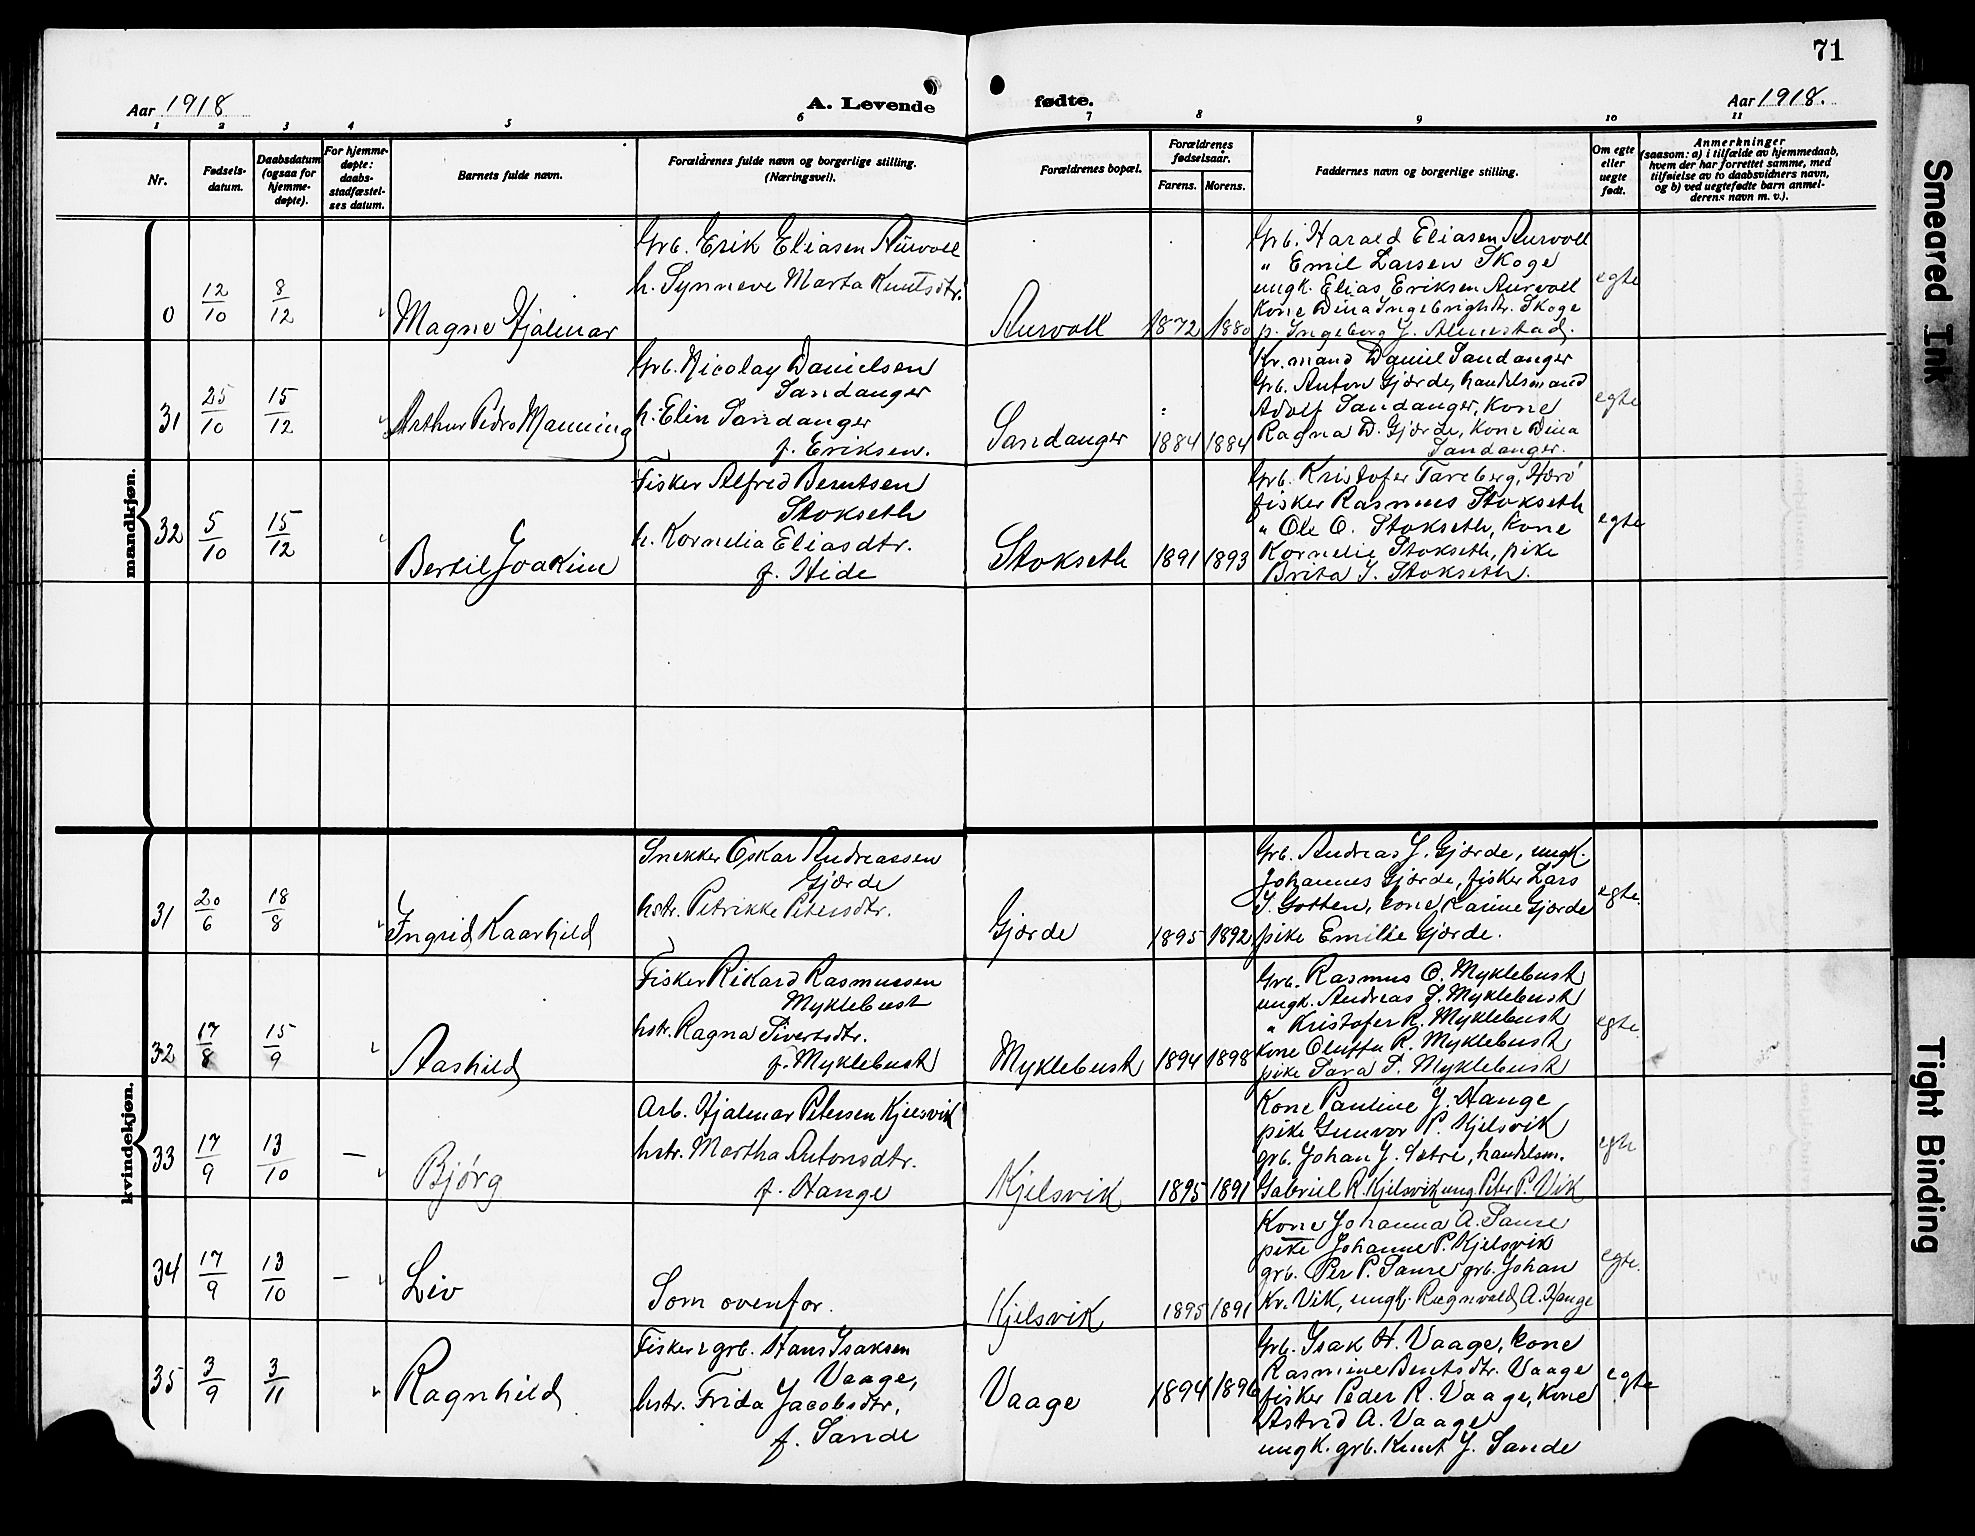 71
Aar 1918
A. Levende
fødte.
Aar 1918.
1 2 3 4 5 6 7 8 9 10 11
Nr.
Fødsels-
datum.
Daabsdatum
(ogsaa for
hjemme-
døpte).
For hjemme-
døpte:
daabs-
stadfæstel-
ses datum.
Barnets fulde navn.
Forældrenes fulde navn og borgerlige stilling.
(Næringsvei).
Forældrenes bopæl.
Forældrenes
fødselsaar.
Farens. Morens.
Faddernes navn og borgerlige stilling.
Om egte
eller
uegte
født.
Anmerkninger
(saasom: a) i tilfælde av hjemmedaab,
hvem der har forrettet samme, med
tilføielse av to daabsvidners navn,
og b) ved uegtefødte barn anmel-
derens navn m. v.).
mandkjøn.
0 12/10 8/12 Magne Hjalmar
Grb. Erik Eliasen Aurvoll
h. Synneve Marta Knutsdtr.
Aurvoll 1872 1880
Grb. Harald Eliasen Aurvoll
" Emil Larsen Skoge
ungk. Elias Eriksen Aurvoll
Kone Dina Ingebrigtsdtr. Skoge
p. Ingeborg J. Almestad.
egte
31 25/10 15/12 Arthur Pedro Manning
Grb. Nicolay Danielsen
Sandanger
h. Elin Sandanger
f. Eriksen.
Sandanger 1884 1884
Kr.mand Daniel Sandanger
Grb. Anton Gjærde, handelsmand
Adolf Sandanger, Kone
Ragna D. Gjærde, Kone Dina
Sandanger.
egte
32 5/10 15/12 Bertil Joakim
Fisker Alfred Berntsen
Stokseth
h. Kornelia Eliasdtr.
f. Hide
Stokseth 1891 1893
Grb. Kristofer Tarberg, Herö
fisker Rasmus Stokseth
" Ole O. Stokseth, Kone
Kornelie Stokseth, pike
Brita J. Stokseth.
egte
kvindekjøn.
31 20/6 18/8 Ingrid Kaarhild
Snekker Oskar Andreassen
Gjærde
hstr. Petrikke Petersdtr.
Gjærde 1895 1892
Grb. Andreas J. Gjærde, ungk.
Johannes Gjærde, fisker Lars
J. Gotten, kone Karine Gjærde
pike Emilie Gjærde.
egte.
32 17/8 15/9 Aashild
Fisker Rikard Rasmussen
Myklebust
hstr. Ragna Sivertsdtr.
f. Myklebust
Myklebust 1894 1898
Grb. Rasmus O. Myklebust
ungk. Andreas S. Myklebust
" Kristofer R. Myklebust
Kone Oluffa R. Myklebust
pike Sara S. Myklebust
egte.
33 17/9 13/10 — Bjørg
Arb. Hjalmar Petersen Kjelsvik
hstr. Martha Antonsdtr.
f. Hauge
Kjelsvik 1895 1891
Kone Pauline J. Hauge
pike Gunvor P. Kjelsvik
grb. Johan J. Sætre, handelsm.
Gabriel R. Kjelsvik ung. Peter P. Vik
egte
34 17/9 13/10 — Liv
Som ovenfor.
Kjelsvik 1895 1891
Kone Johanna A. Saure
pike Johanne P. Kjelsvik
grb. Per P. Saure grb. Johan
Kr. Vik, ungk. Ragnvald A. Hauge
egte.
35 3/9 3/11 Ragnhild
Fisker & grb. Hans Isaksen
Vaage,
hstr. Frida Jacobsdtr,
f. Sande
Vaage 1894 1896
Grb. Isak H. Vaage, kone
Rasmine Berntsdtr. Vaage
fisker Peder R. Vaage, Kone
Astrid A. Vaage
ungk. grb. Knut J. Sande
egte
Smeared Ink
Tight Binding